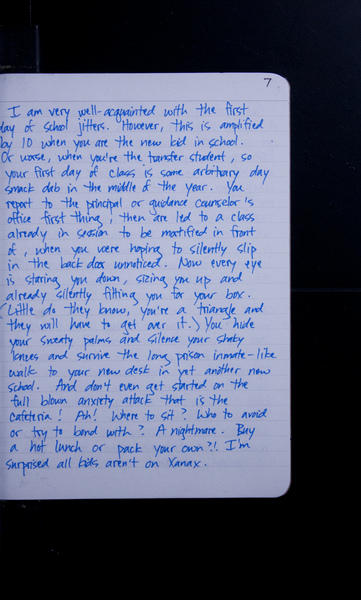 7
I am very well-acquainted with the first
day of school jitters. However, this is amplified
by 10 when you are the new kid in school.
Or worse, when you're the transfer student, so
your first day of class is some arbitrary day
smack dab in the middle of the year. You
report to the principal or guidance counselor's
office first thing, then are led to a class
already in session to be mortified in front
of, when you were hoping to silently slip
in the back door unnoticed. Now every eye
is staring you down, sizing you up and
already silently fitting you for your box.
(Little do they know, you're a triangle and
they will have to get over it.) You hide
your sweaty palms and silence your shaky
knees and survive the long prison inmate-like
walk to your new desk in yet another new
school. And don't even get started on the
full blown anxiety attack that is the
cafeteria! Ah! Where to sit? Who to avoid
or try to bond with? A nightmare. Buy
a hot lunch or pack your own?! I'm
surprised all kids aren't on Xanax.